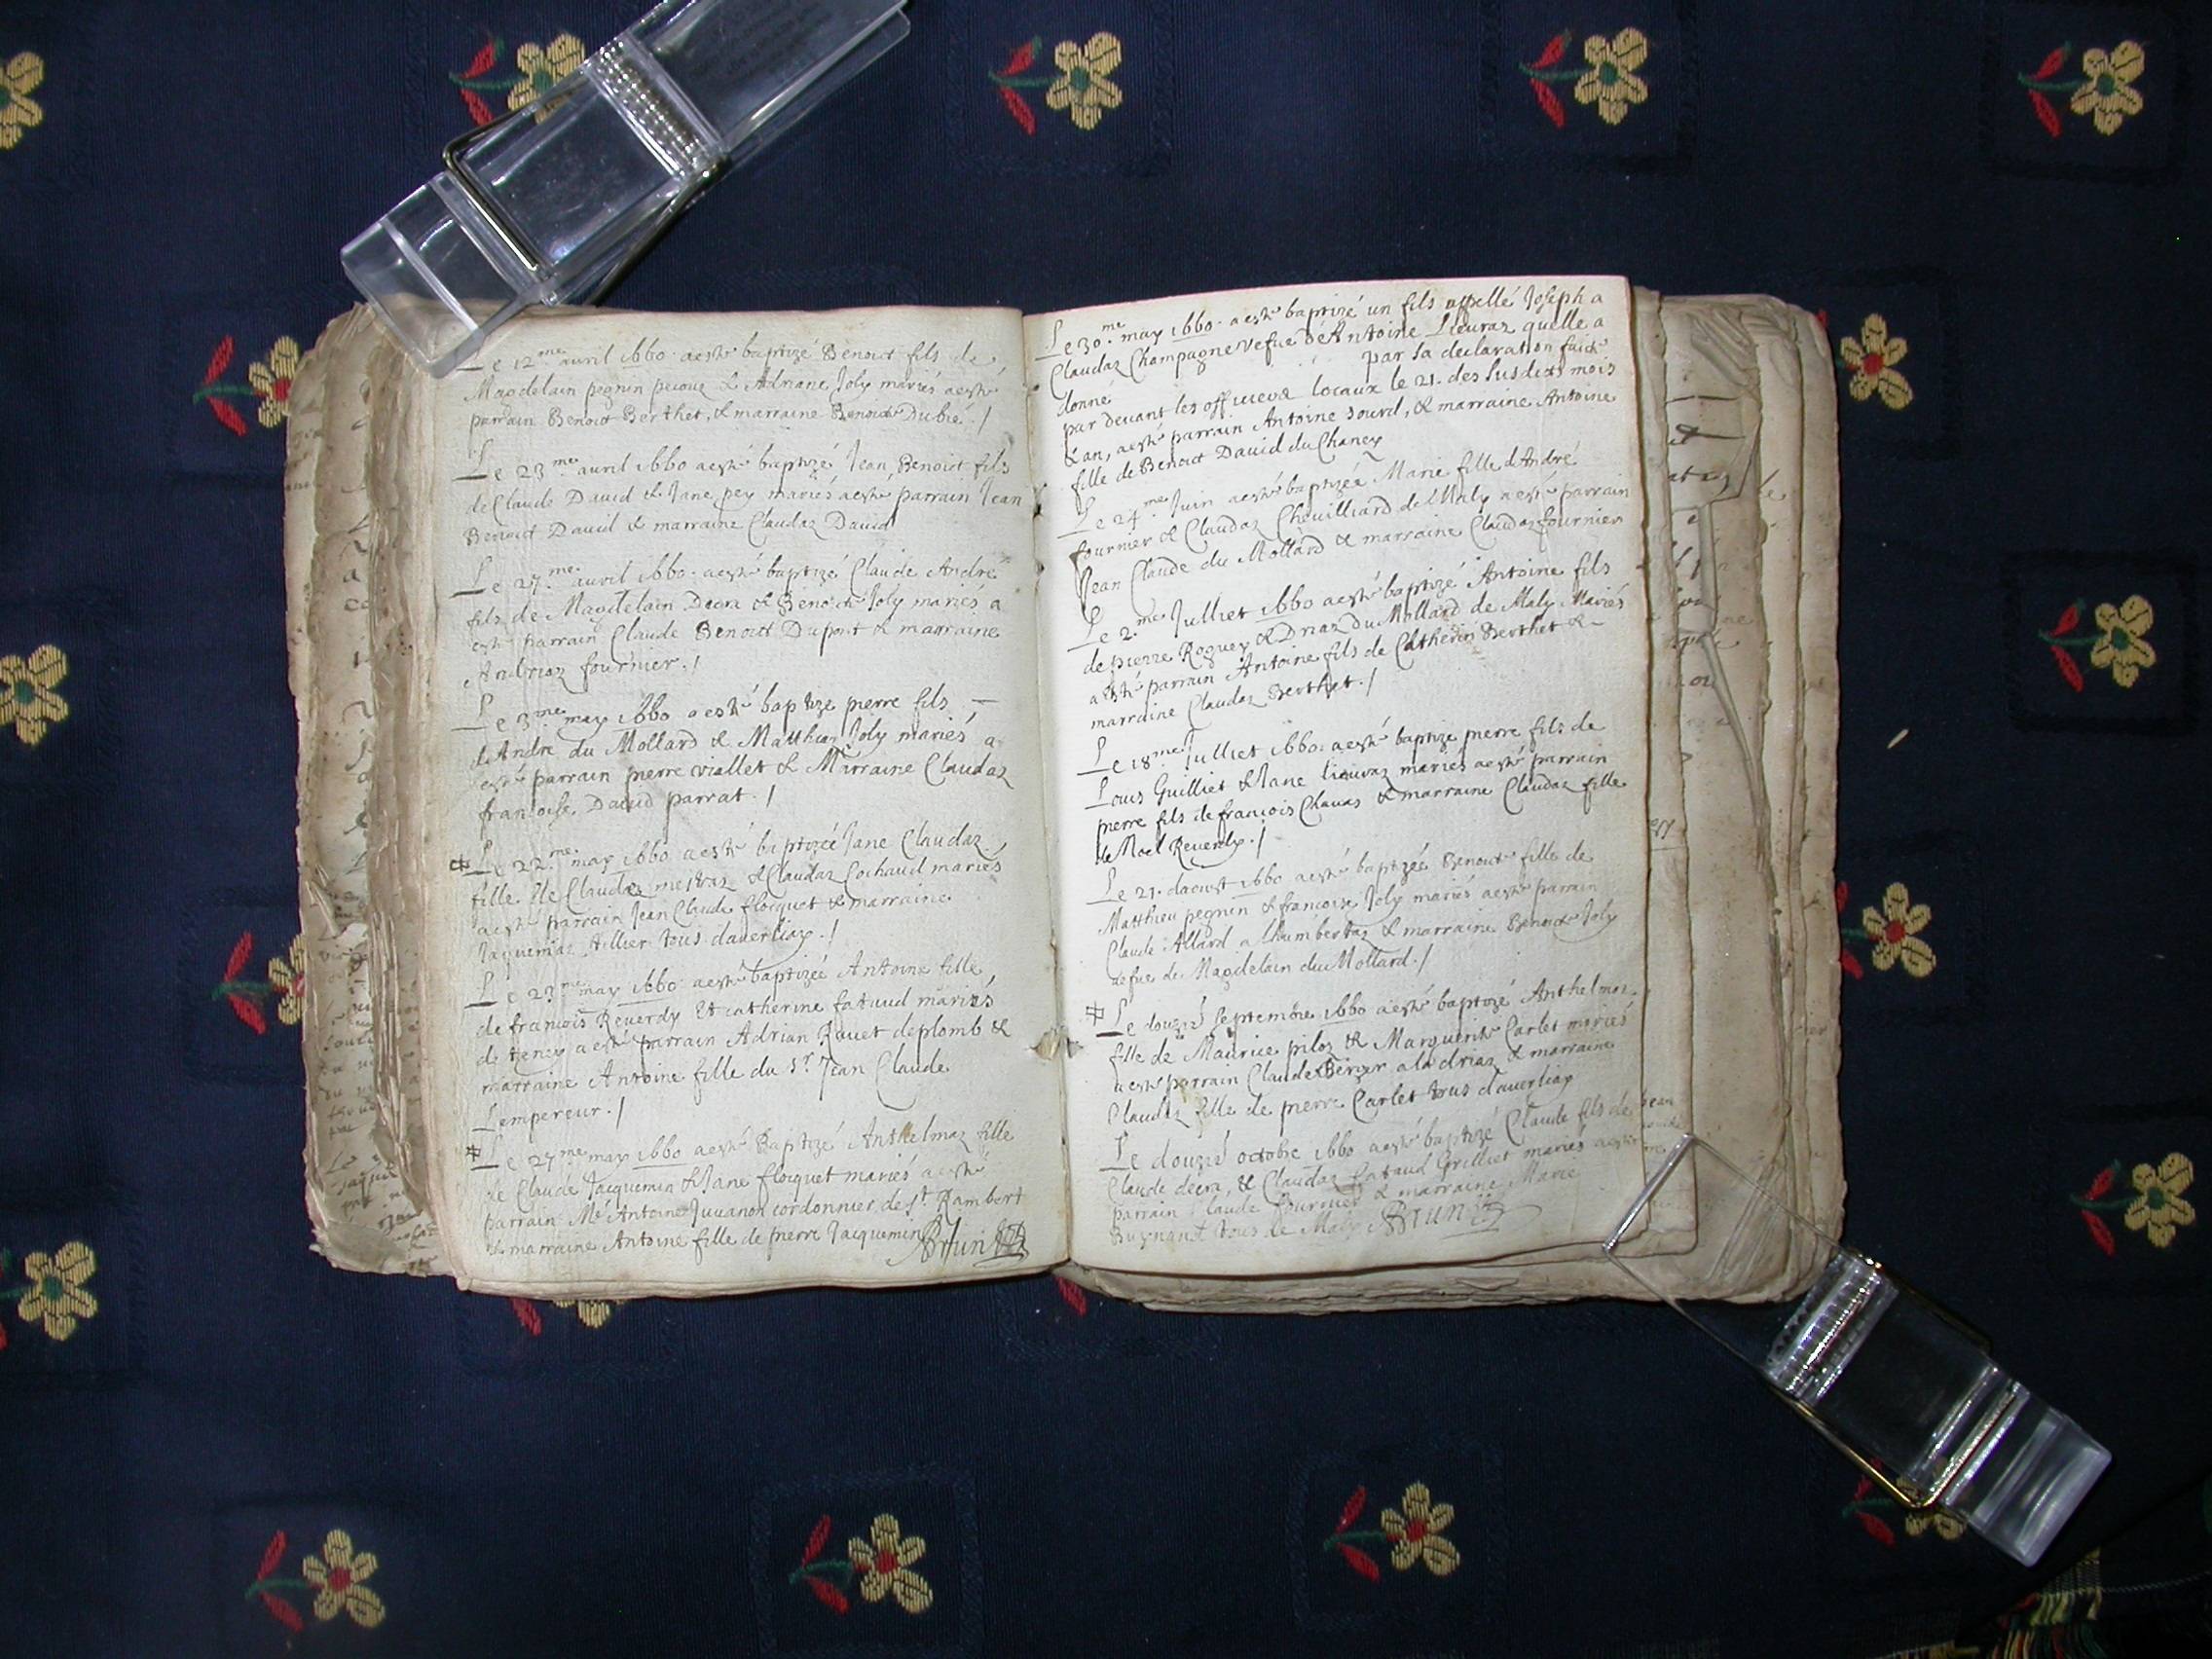 Le 12.me avril 1660. a esté baptizé Benoict fils de
Magdelain pegnin pecouz & Adriane Joly mariés a esté
parrain Benoict Berthet, & marraine Benoicte Dubié. /
Le 23.me avril 1660 a esté baptizé Jean Benoict fils
de Claude David & Jane pey mariés a esté parrain Jean
Benoict David & marraine Claudaz David
Le 27.me avril 1660. a esté baptizé Claude André
fils de Magdelain Decra & Benoicte Joly mariés a
esté parrain Claude Benoict Dupont & marraine
Andriaz fournier. /
Le 3.me may 1660 a esté baptizé pierre fils
d'André du Mollard & Matthiaz Joly mariés a
esté parrain pierre viallet & Marraine Claudaz
françoise David parrat. /
Le 22.me may 1660 a esté baptizée Jane Claudaz
fille de Claude & Claudaz Cochaud mariés
a esté parrain Jean Claude floquet & marraine
Jaquemaz tillier tous daverliaz. /
Le 23.me may 1660. a esté baptizée Antoine fille
de françois Reverdy Et catherine fataud mariés
de teney a esté parrain Adrian Ravet deplomb &
marraine Antoine fille du Sr. Jean Claude
Lempereur. /
Le 27.me may 1660 a esté Baptizé Anthelmaz fille
de Claude Jacquemin & Jane floquet mariés a esté
parrain Me Antoine Juvanon cordonnier de St Rambert
& marraine Antoine fille de pierre Jacquemin Brun
Le 30.me may 1660. a esté baptizé un fils appellé Joseph a
Claudaz Champagne vefue d'Antoine Lieuraz quelle a
donné par sa declaration faicte
par devant les officiers locaux le 21. des susdicts mois
& an, a esté parrain Antoine sourd, & marraine Antoine
fille de Benoict David du Chaney
Le 24.me Juin a esté baptizée Marie fille d'André
fournier & Claudaz Chevilliard de Maly a esté parrain
Jean Claude du Mollard & marraine Claudaz fournier
Le 2.me Julliet 1660 a esté baptizé Antoine fils
de pierre Roguey & Driaz Du Mollard de Maly Mariés
a esté parrain Antoine fils de Catherin Berthet &
marraine Claudaz Berthet. /
Le 18.me Julliet 1660. a esté baptizé pierre fils de
Louis Guilliet & Jane lieuvraz mariés a esté parrain
pierre fils de françois Chavas & marraine Claudaz fille
de Moel Reverdy. /
Le 21. daoust 1660 a esté baptizée Benoicte fille de
Matthieu pegnin & francoise Joly mariés a esté parrain
Claude Allard a lhumbertaz & marraine Benoicte Joly
vefue de Magdelain du Mollard. /
Le douzie septembre 1660 a esté baptizé Anthelmaz
fille de Maurice piloz & Marguerite Carlet mariés
a esté parrain Claude Berger a la driaz & marraine
Claudaz fille de pierre Carlet tous daverliaz
Le douzie octobre 1660 a esté baptizé Claude fils de
Claude decra, & Claudaz fataud Grilliet mariés a esté
parrain Claude fournier & marraine Marie
Buynand tous de Maly Brun